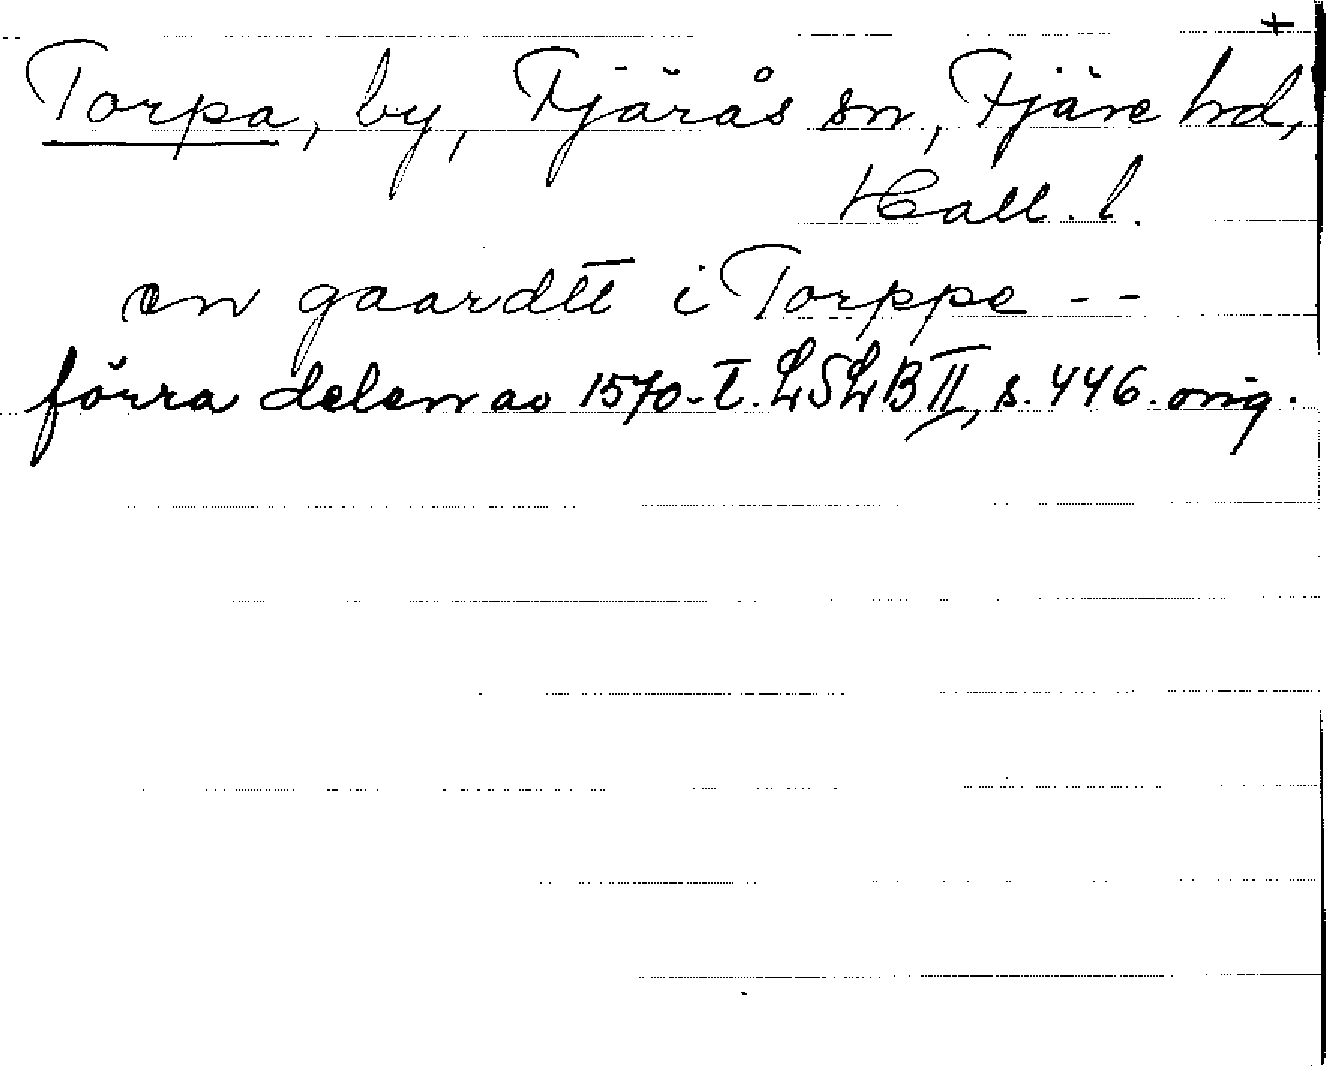 +
Torpa, by, Fjärås sn, Fjäre hd,
Hall. l.
en gaardtt i Torppe - -
förra delen av 1570-t. LSLB II, s. 446. orig.